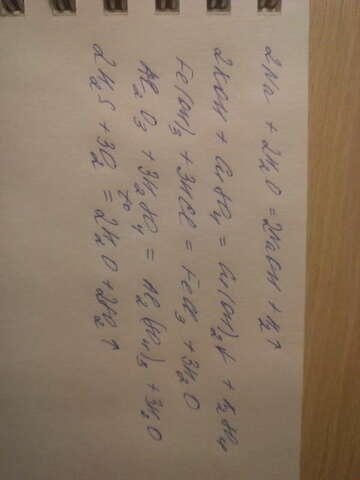 2Na + 2H₂O = 2NaOH + H₂↑
2KOH + CuSO₄ = Cu(OH)₂↓ + K₂SO₄
Fe(OH)₃ + 3HCl = FeCl₃ + 3H₂O
Al₂O₃ + 3H₂SO₄ = Al₂(SO₄)₃ + 3H₂O
2H₂S + 3O₂ = 2H₂O + 2SO₂↑